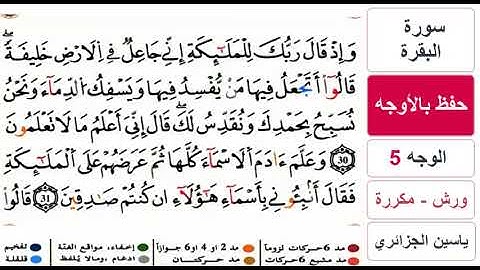 سورة
البقرة
حفظ بالأوجه
الوجه 5
ورش - مكررة
ياسين الجزائري
وَإِذْ قَالَ رَبُّكَ لِلْمَلَٰٓئِكَةِ إِنِّے جَاعِلٞ فِے اِلَارْضِ خَلِيفَةٗۖ
قَالُوٓاْ أَتَجْعَلُ فِيهَا مَنْ يُّفْسِدُ فِيهَا وَيَسْفِكُ الدِّمَآءَ وَنَحْنُ
نُسَبِّحُ بِحَمْدِكَ وَنُقَدِّسُ لَكَۖ قَالَ إِنِّيَ أَعْلَمُ مَا لَا تَعْلَمُونَ
30 وَعَلَّمَ ءَادَمَ اَلَاسْمَآءَ كُلَّهَا ثُمَّ عَرَضَهُمْ عَلَى اَلْمَلَٰٓئِكَةِ
فَقَالَ أَنۢبِـُٔونِے بِأَسْمَآءِ هَٰٓؤُلَآءِ ان كُنتُمْ صَٰدِقِينَ 31 قَالُواْ
مد 6 حركات لزوماً مد 2 أو 4 أو 6 جوازاً إخفاء، ومواقع الغنة تفخيم
مد مشبع 6 حركات مد حركتان إدغام، وما لا يلفظ قلقلة